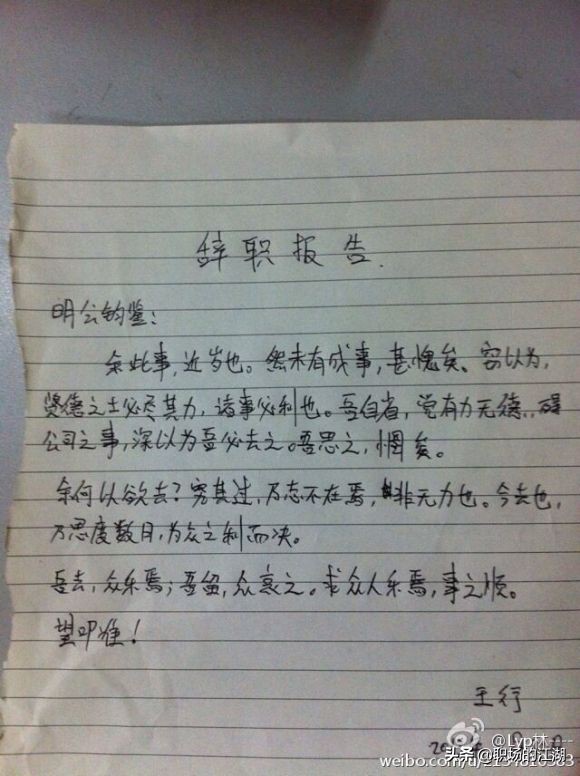 辞职报告.
明公钧鉴：
余此事，近岁也。然未有成事，甚愧矣。窃以为，
贤德之士必尽其力，诸事必利也。吾自省，觉有力无德，碍
公司之事，深以为吾必去之。吾思之，惘矣。
余何以欲去？穷其过，乃志不在焉，非无力也。今去也，
乃思度数月，为众之利而决。
吾去，众乐焉；吾留，众哀之。求众人乐焉，事之顺。
望叩准！
王行
@Lyp林
头条@职场的江湖